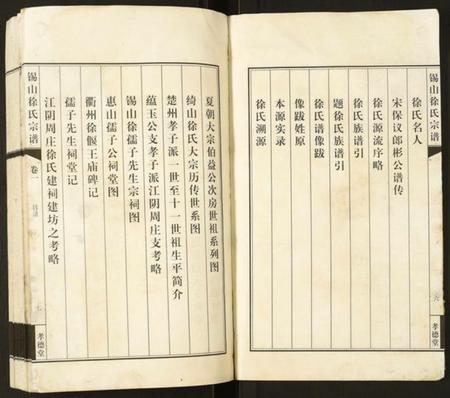 锡山徐氏宗谱
六
孝德堂
徐氏名人
宋保议郎彬公谱传
徐氏源流序略
徐氏族谱引
题徐氏族谱引
徐氏谱像跋
像跋姓原
本源实录
徐氏溯源
夏朝大宗伯益公次房世祖系列图
绮山徐氏大宗历传世系图
楚州孝子派一世至十一世祖生平简介
蕴玉公支孝子派江阴周庄支考略
锡山徐儒子先生宗祠图
惠山儒子公祠堂图
衢州徐偃王庙碑记
儒子先生祠堂记
江阴周庄徐氏建祠建坊之考略
锡山徐氏宗谱
卷一
七
孝德堂